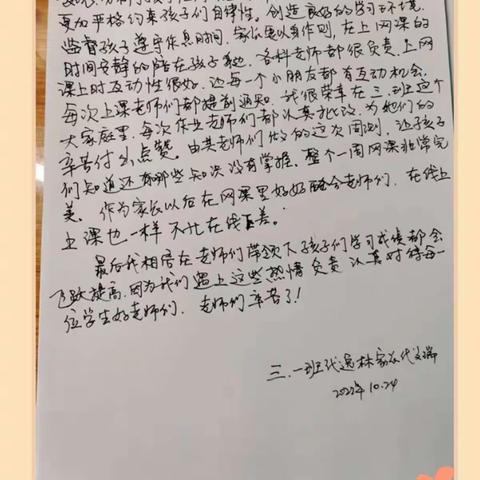 更加严格约束孩子们自律性。创造良好的学习环境
监督孩子遵守作息时间,家长要以身作则,在上网课的
时间安静的陪在孩子身边。各科老师都很负责,上网
课上时互动性很好,让每一个小朋友都有互动机会,
每次上课老师们都提前通知。我很荣幸在三.一班这个
大家庭里,每次作业老师们都认真批改,为他们的
辛苦付出点赞。由其老师们做的这次周测,让孩子
们知道还有哪些知识没有掌握,整个一周网课非常完
美。作为家长以后在网课里好好配合老师们,在线上
上课也一样不比在线下差。
最后我相信在老师们带领下孩子们学习成绩都会
飞跃提高,因为我们遇上这些热情负责认真对待每一
位学生好老师们,老师们辛苦了!
三.一班代逸林家长代文瑞
2022年10.24